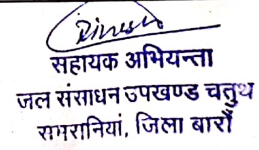 Dinesh
सहायक अभियन्ता
जल संसाधन उपखण्ड चतुथ
रामरानियां, जिला बारौं